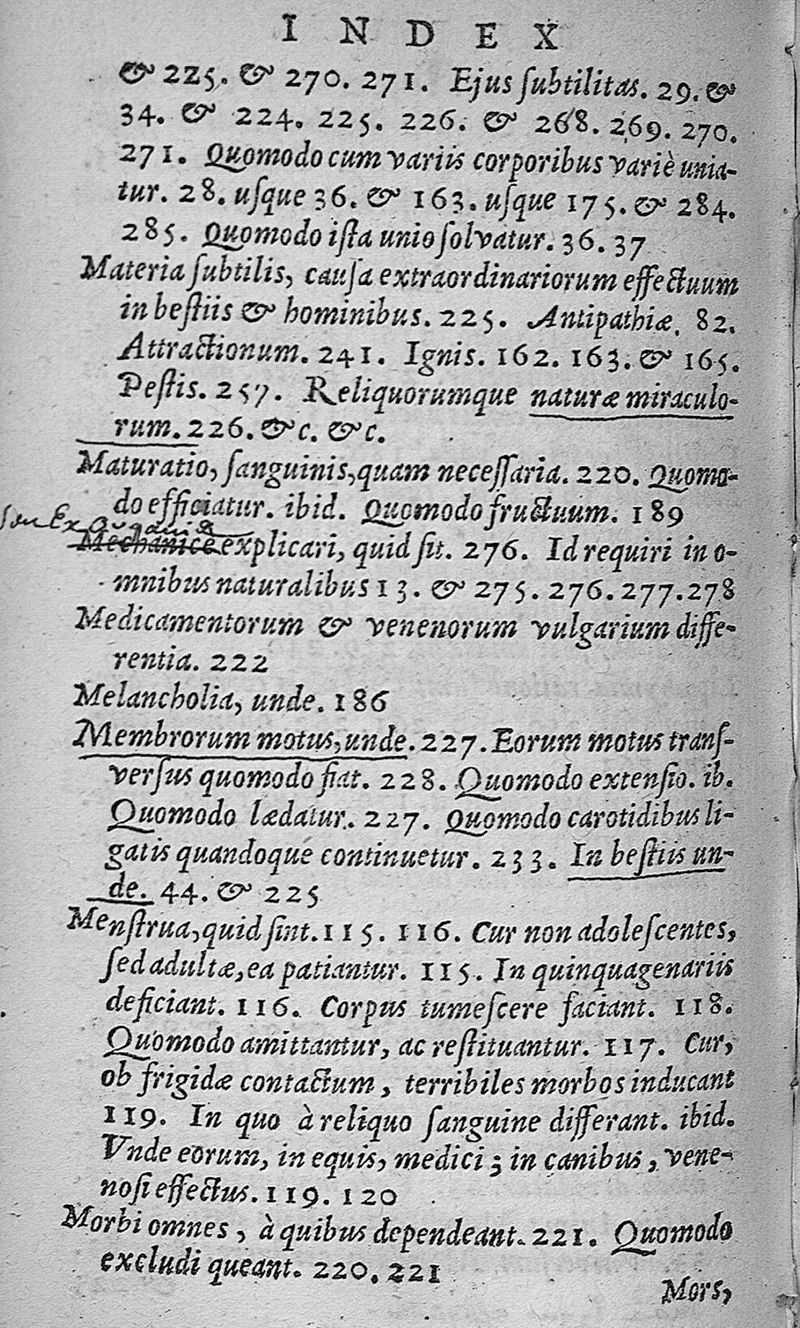 INDEX
& 225. & 270. 271. Ejus ſubtilitas. 29. &
34. & 224. 225. 226. & 268. 269. 270.
271. Quomodo cum variis corporibus variè unia-
tur. 28. uſque 36. & 163. uſque 175. & 284.
285. Quomodo iſta unio ſolvatur. 36. 37
Materia ſubtilis, cauſa extraordinariorum effectuum
in beſtiis & hominibus. 225. Antipathiæ. 82.
Attractionum. 241. Ignis. 162. 163. & 165.
Peſtis. 257. Reliquorumque naturæ miraculo-
rum. 226. &c. &c.
Maturatio, ſanguinis, quam neceſſaria. 220. Quomo-
do efficiatur. ibid. Quomodo fructuum. 189
Mechanicè explicari, quid ſit. 276. Id requiri in o-
mnibus naturalibus 13. & 275. 276. 277. 278
Medicamentorum & venenorum vulgarium diffe-
rentia. 222
Melancholia, unde. 186
Membrorum motus, unde. 227. Eorum motus tranſ-
verſus quomodo fiat. 228. Quomodo extenſio. ib.
Quomodo lædatur. 227. Quomodo carotidibus li-
gatis quandoque continuetur. 233. In beſtiis un-
de. 44. & 225
Menſtrua, quid ſint. 115. 116. Cur non adoleſcentes,
ſed adultæ, ea patiantur. 115. In quinquagenariis
deficiant. 116. Corpus tumeſcere faciant. 118.
Quomodo amittantur, ac reſtituantur. 117. Cur,
ob frigidæ contactum, terribiles morbos inducant
119. In quo à reliquo ſanguine differant. ibid.
Vnde eorum, in equis, medici; in canibus, vene-
noſi effectus. 119. 120
Morbi omnes, à quibus dependeant. 221. Quomodo
excludi queant. 220. 221
Mors,